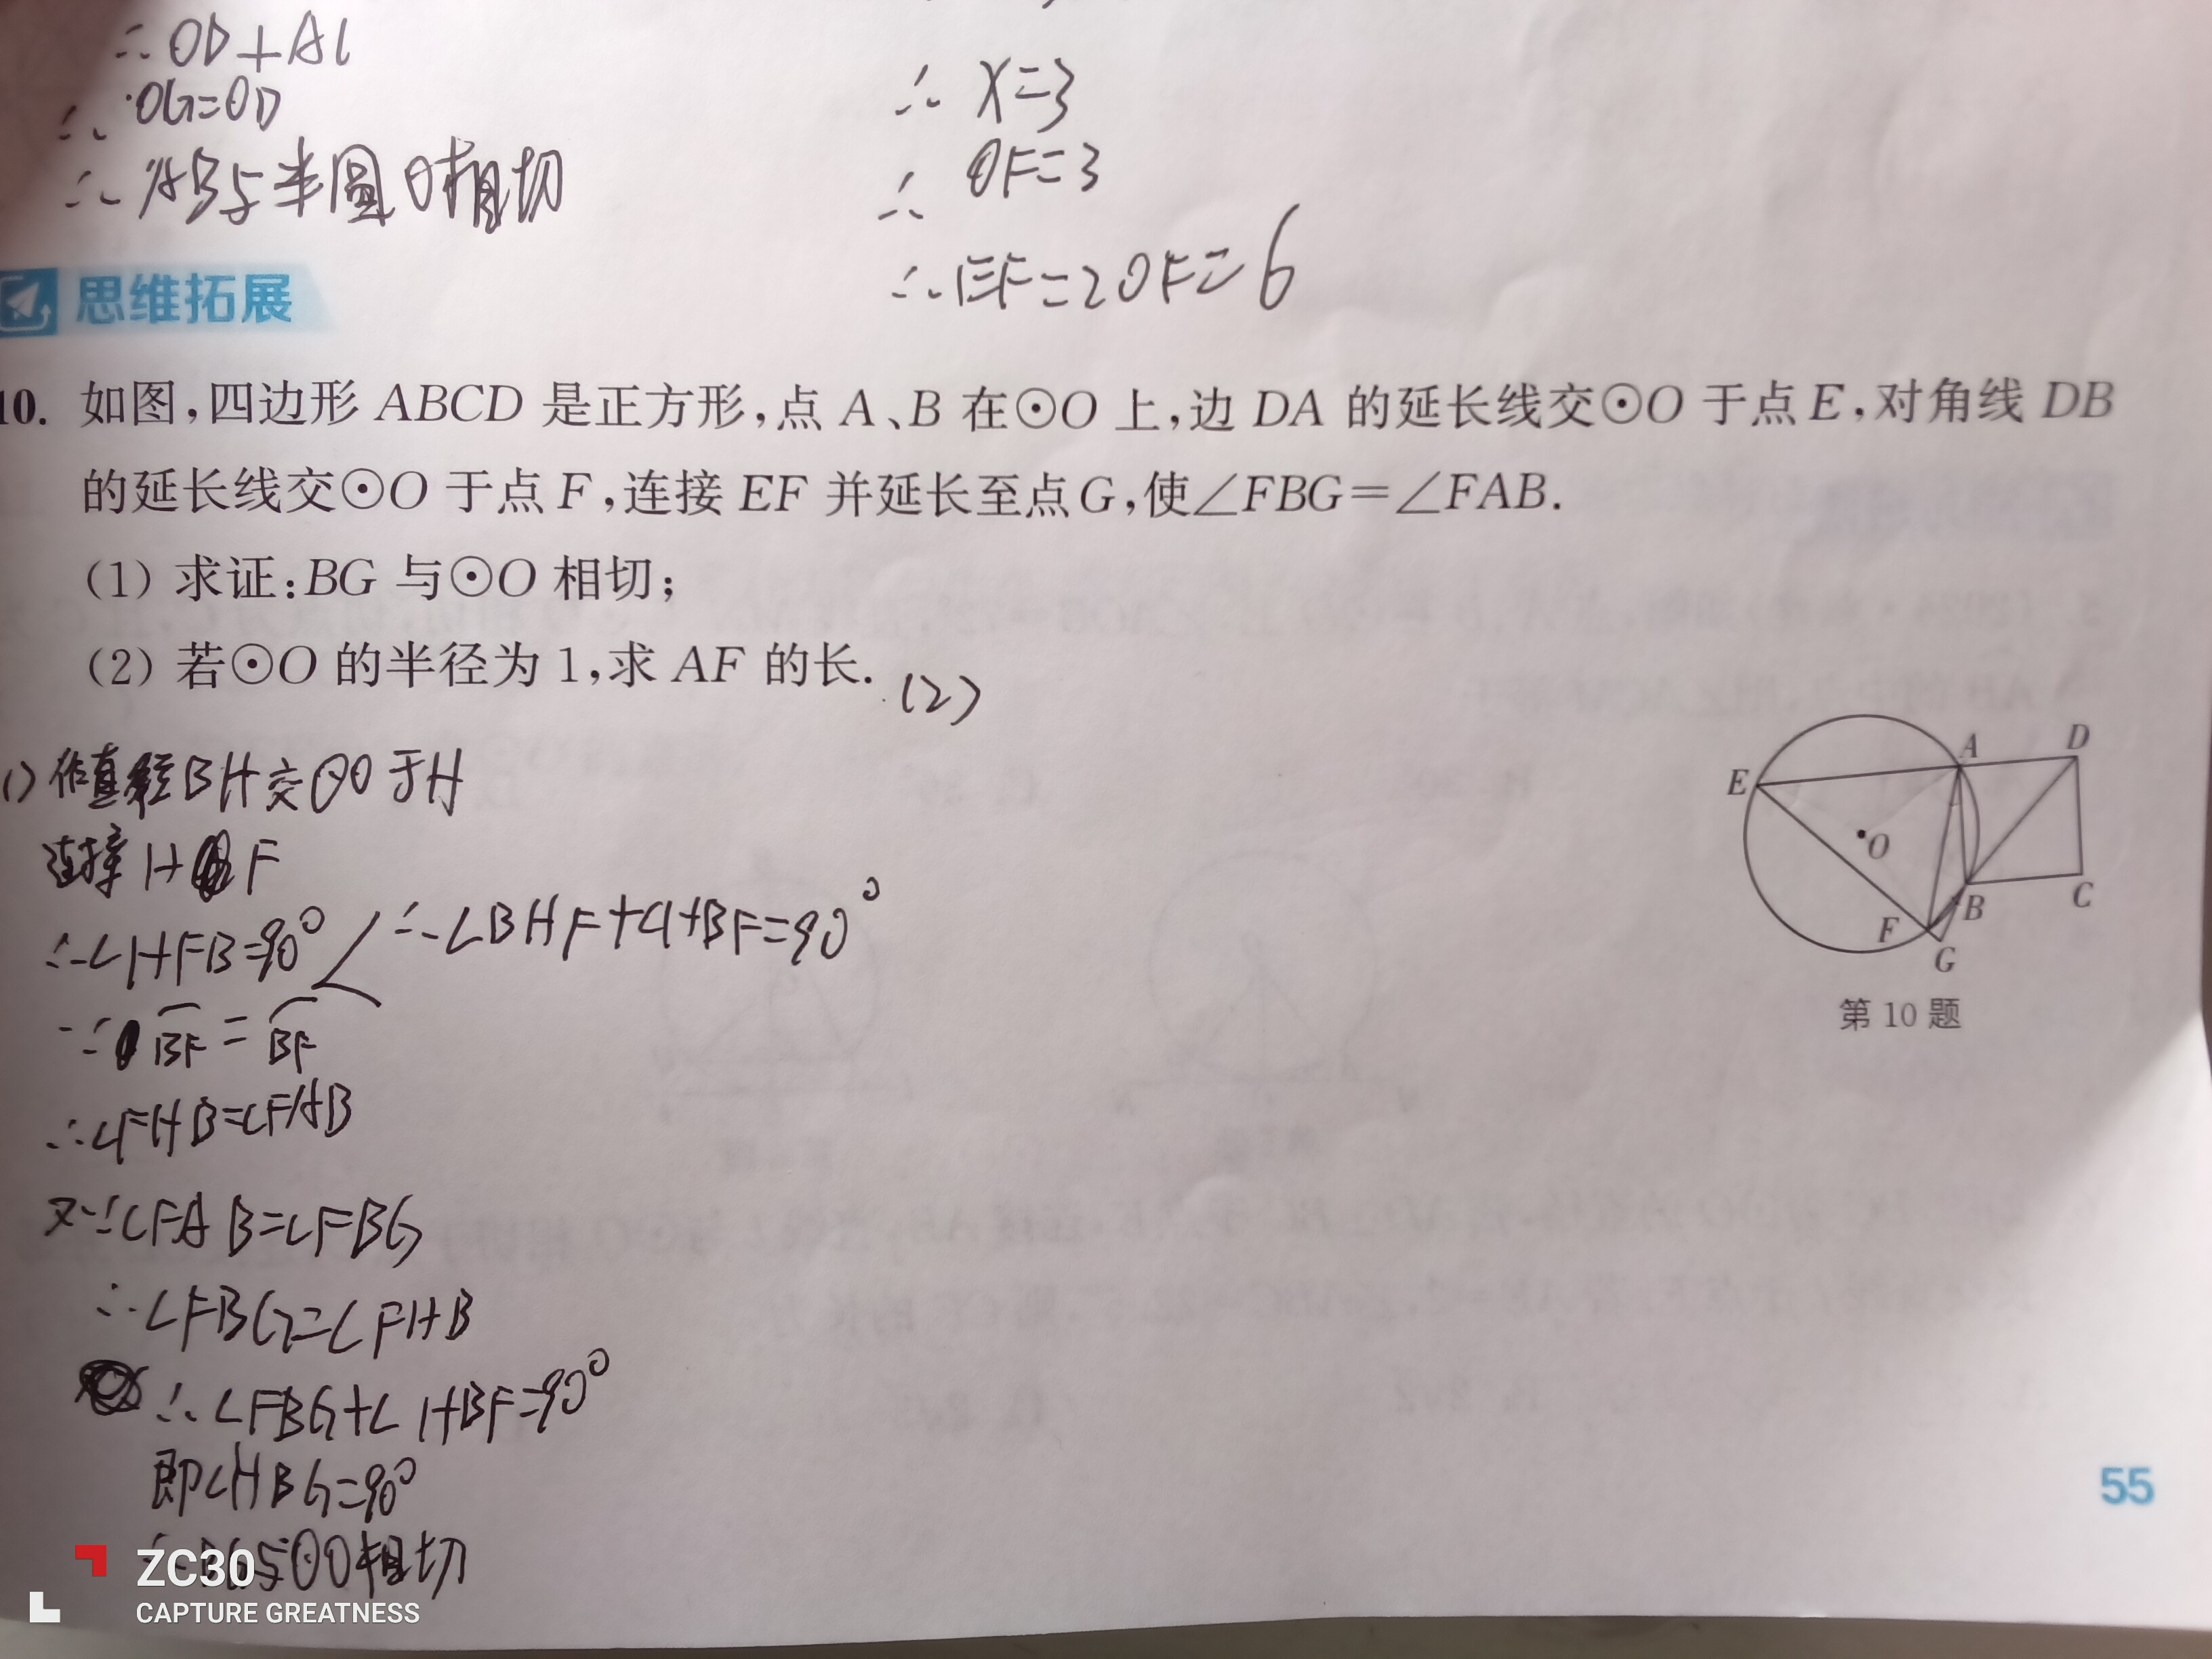 ∴OD⊥AC
∴OG=OD
∴AB与半圆O相切
∴ X=3
∴ OF=3
∴EF=2OF=6
思维拓展
10. 如图,四边形 ABCD 是正方形,点 A、B 在⊙O 上,边 DA 的延长线交⊙O 于点 E,对角线 DB
的延长线交⊙O 于点 F,连接 EF 并延长至点 G,使∠FBG=∠FAB.
(1) 求证:BG 与⊙O 相切;
(2) 若⊙O 的半径为 1,求 AF 的长.
(2)
1) 作直径BH交⊙O于H
连接HF
∴∠HFB=90° ∴∠BHF+∠HBF=90°
∵BF=BF
∴∠FHB=∠FAB
又∵∠FAB=∠FBG
∴∠FBG=∠FHB
∴∠FBG+∠HBF=90°
即∠HBG=90°
∴BG与⊙O相切
A
D
E
O
B
C
F
G
第 10 题
55
ZC30
CAPTURE GREATNESS